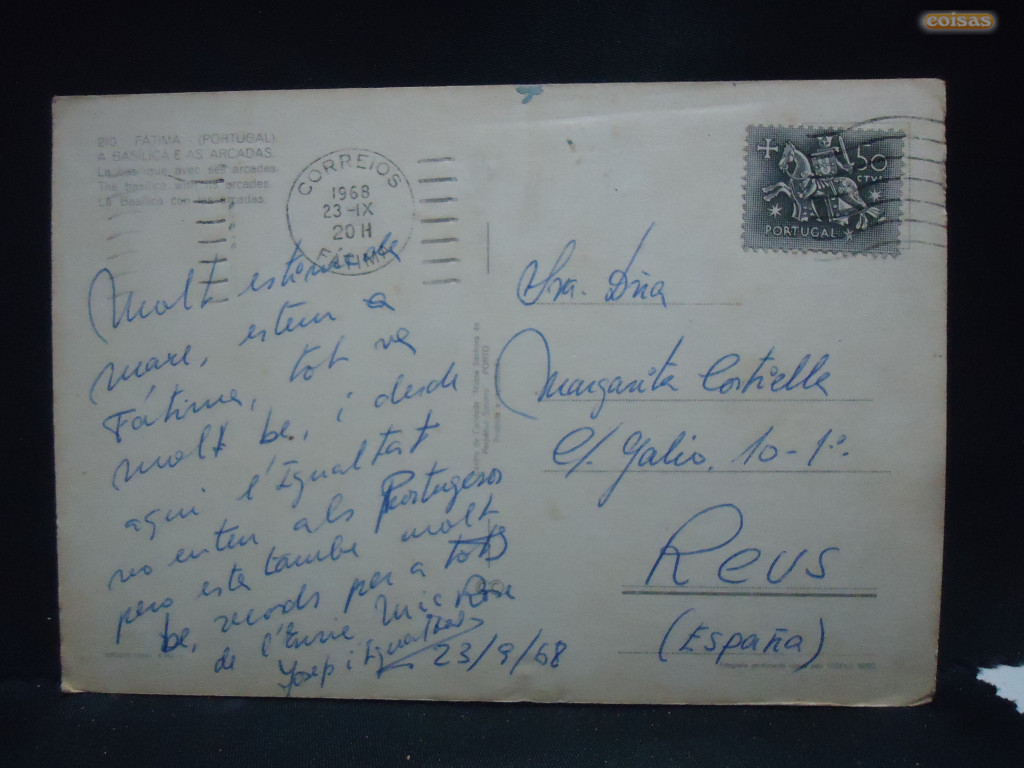 coisas
210 FÁTIMA (PORTUGAL)
A BASÍLICA E AS ARCADAS
La basilique avec ses arcades
The basilica with its arcades
La Basílica con las arcadas
CORREIOS
1968
23-IX
20H
FÁTIMA
50
CTVS
PORTUGAL
Molt estimada
mare, estem a
Fátima, tot va
molt be, i desde
aqui l'Igualtat
no enten als Portugesos
pero esta tambe molt
be, records per a tots
de l'Enric
Josep i Igualtat
23/9/68
PORTO
Sra. Dña
Margarita
c/. Galio, 10-1º.
Reus
(España)